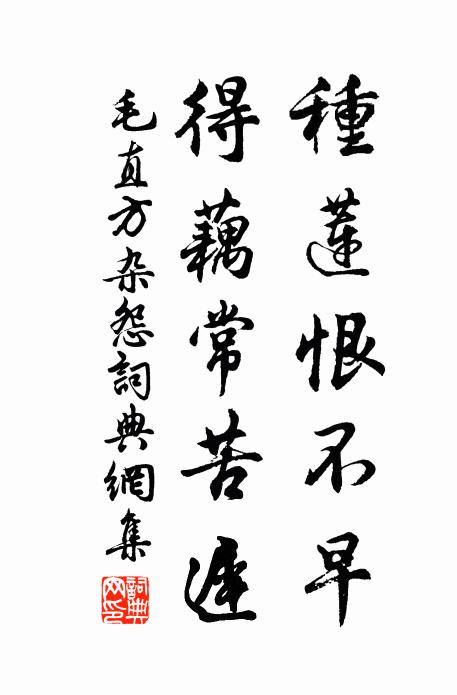 種蓮恨不早
得藕常苦遲
毛直方杂怨詞典網集
詞典